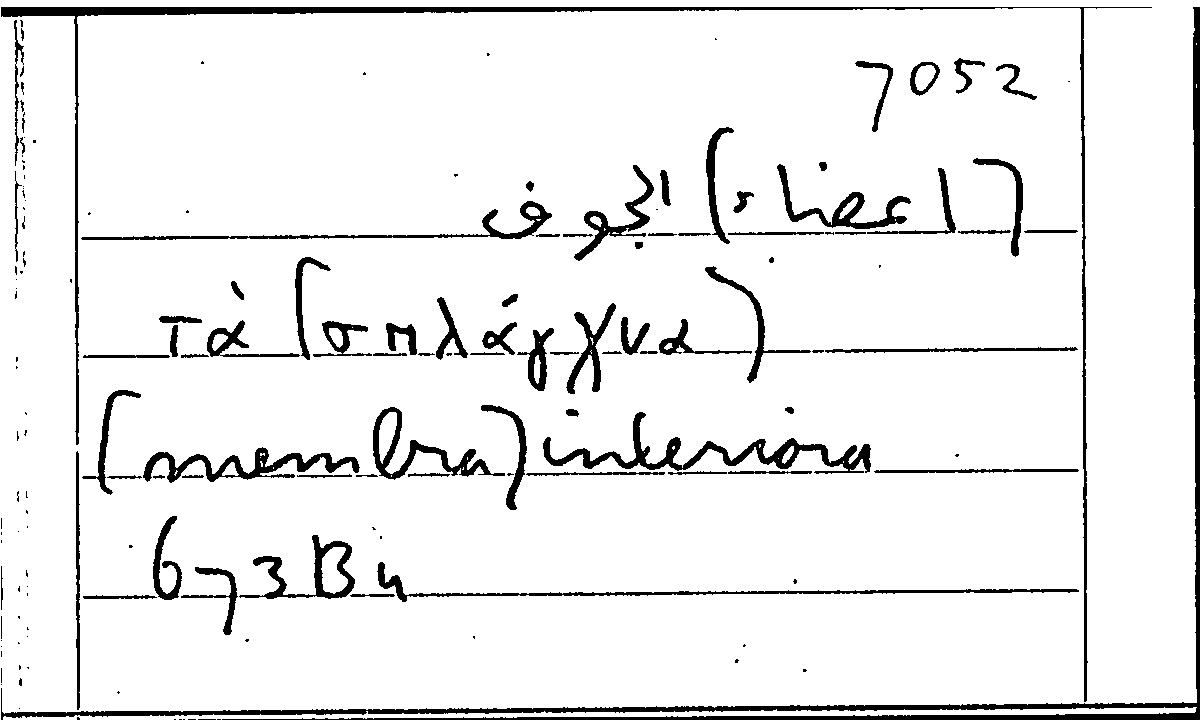 7052
الجوف
τὰ (σπλάγχνα)
(membra) interiora
673B4